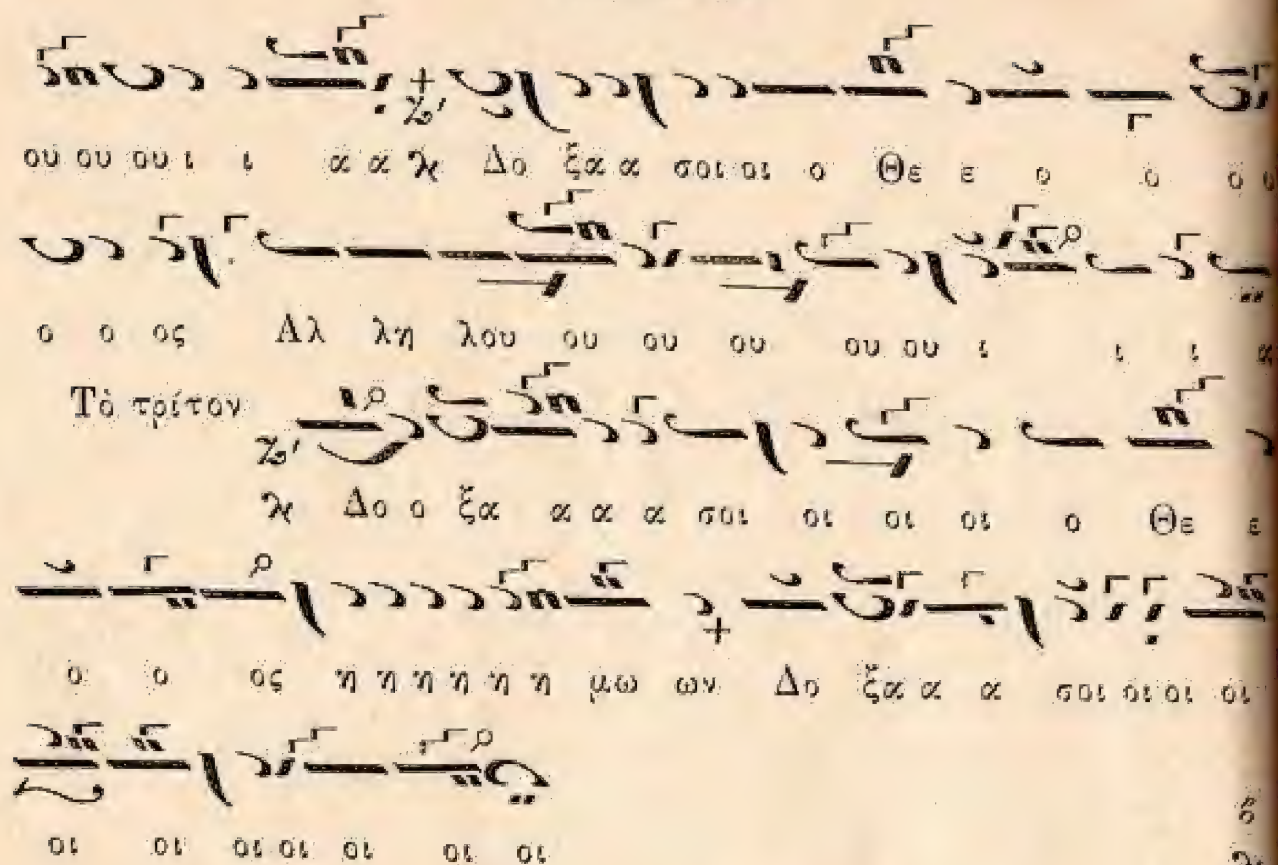 ου ου ου ι ι α α ϗ Δο ξα α σοι οι ο Θε ε ο ο ο
ο ο ος Αλ λη λου ου ου ου ου ου ι ι ι α
Τὸ τρίτον
ϗ Δο ο ξα α α α σοι οι οι οι ο Θε ε
ο ο ος η η η η η η μω ων Δο ξα α α σοι οι οι οι
οι οι οι οι οι οι οι